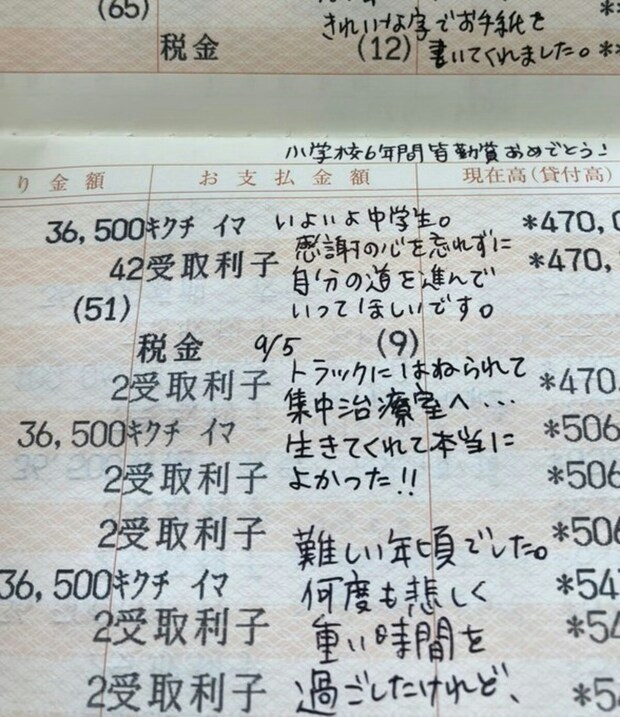 (65)
きれいな字でお手紙を
税金 (12) 書いてくれました。**
小学校6年間皆勤賞おめでとう!
り金額 お支払金額 現在高(貸付高)
36,500キクチ イマ いよいよ中学生。 *470,0
感謝の心を忘れずに
42受取利子 自分の道を進んで *470,
(51) いってほしいです。
税金 9/5 (9)
2受取利子 トラックにはねられて *470.
集中治療室へ...
36,500キクチ イマ 生きてくれて本当に *506
2受取利子 よかった!! *506
2受取利子 難しい年頃でした。 *506
36,500キクチ イマ 何度も悲しく *547
2受取利子 重い時間を *54
2受取利子 過ごしたけれど、 *54